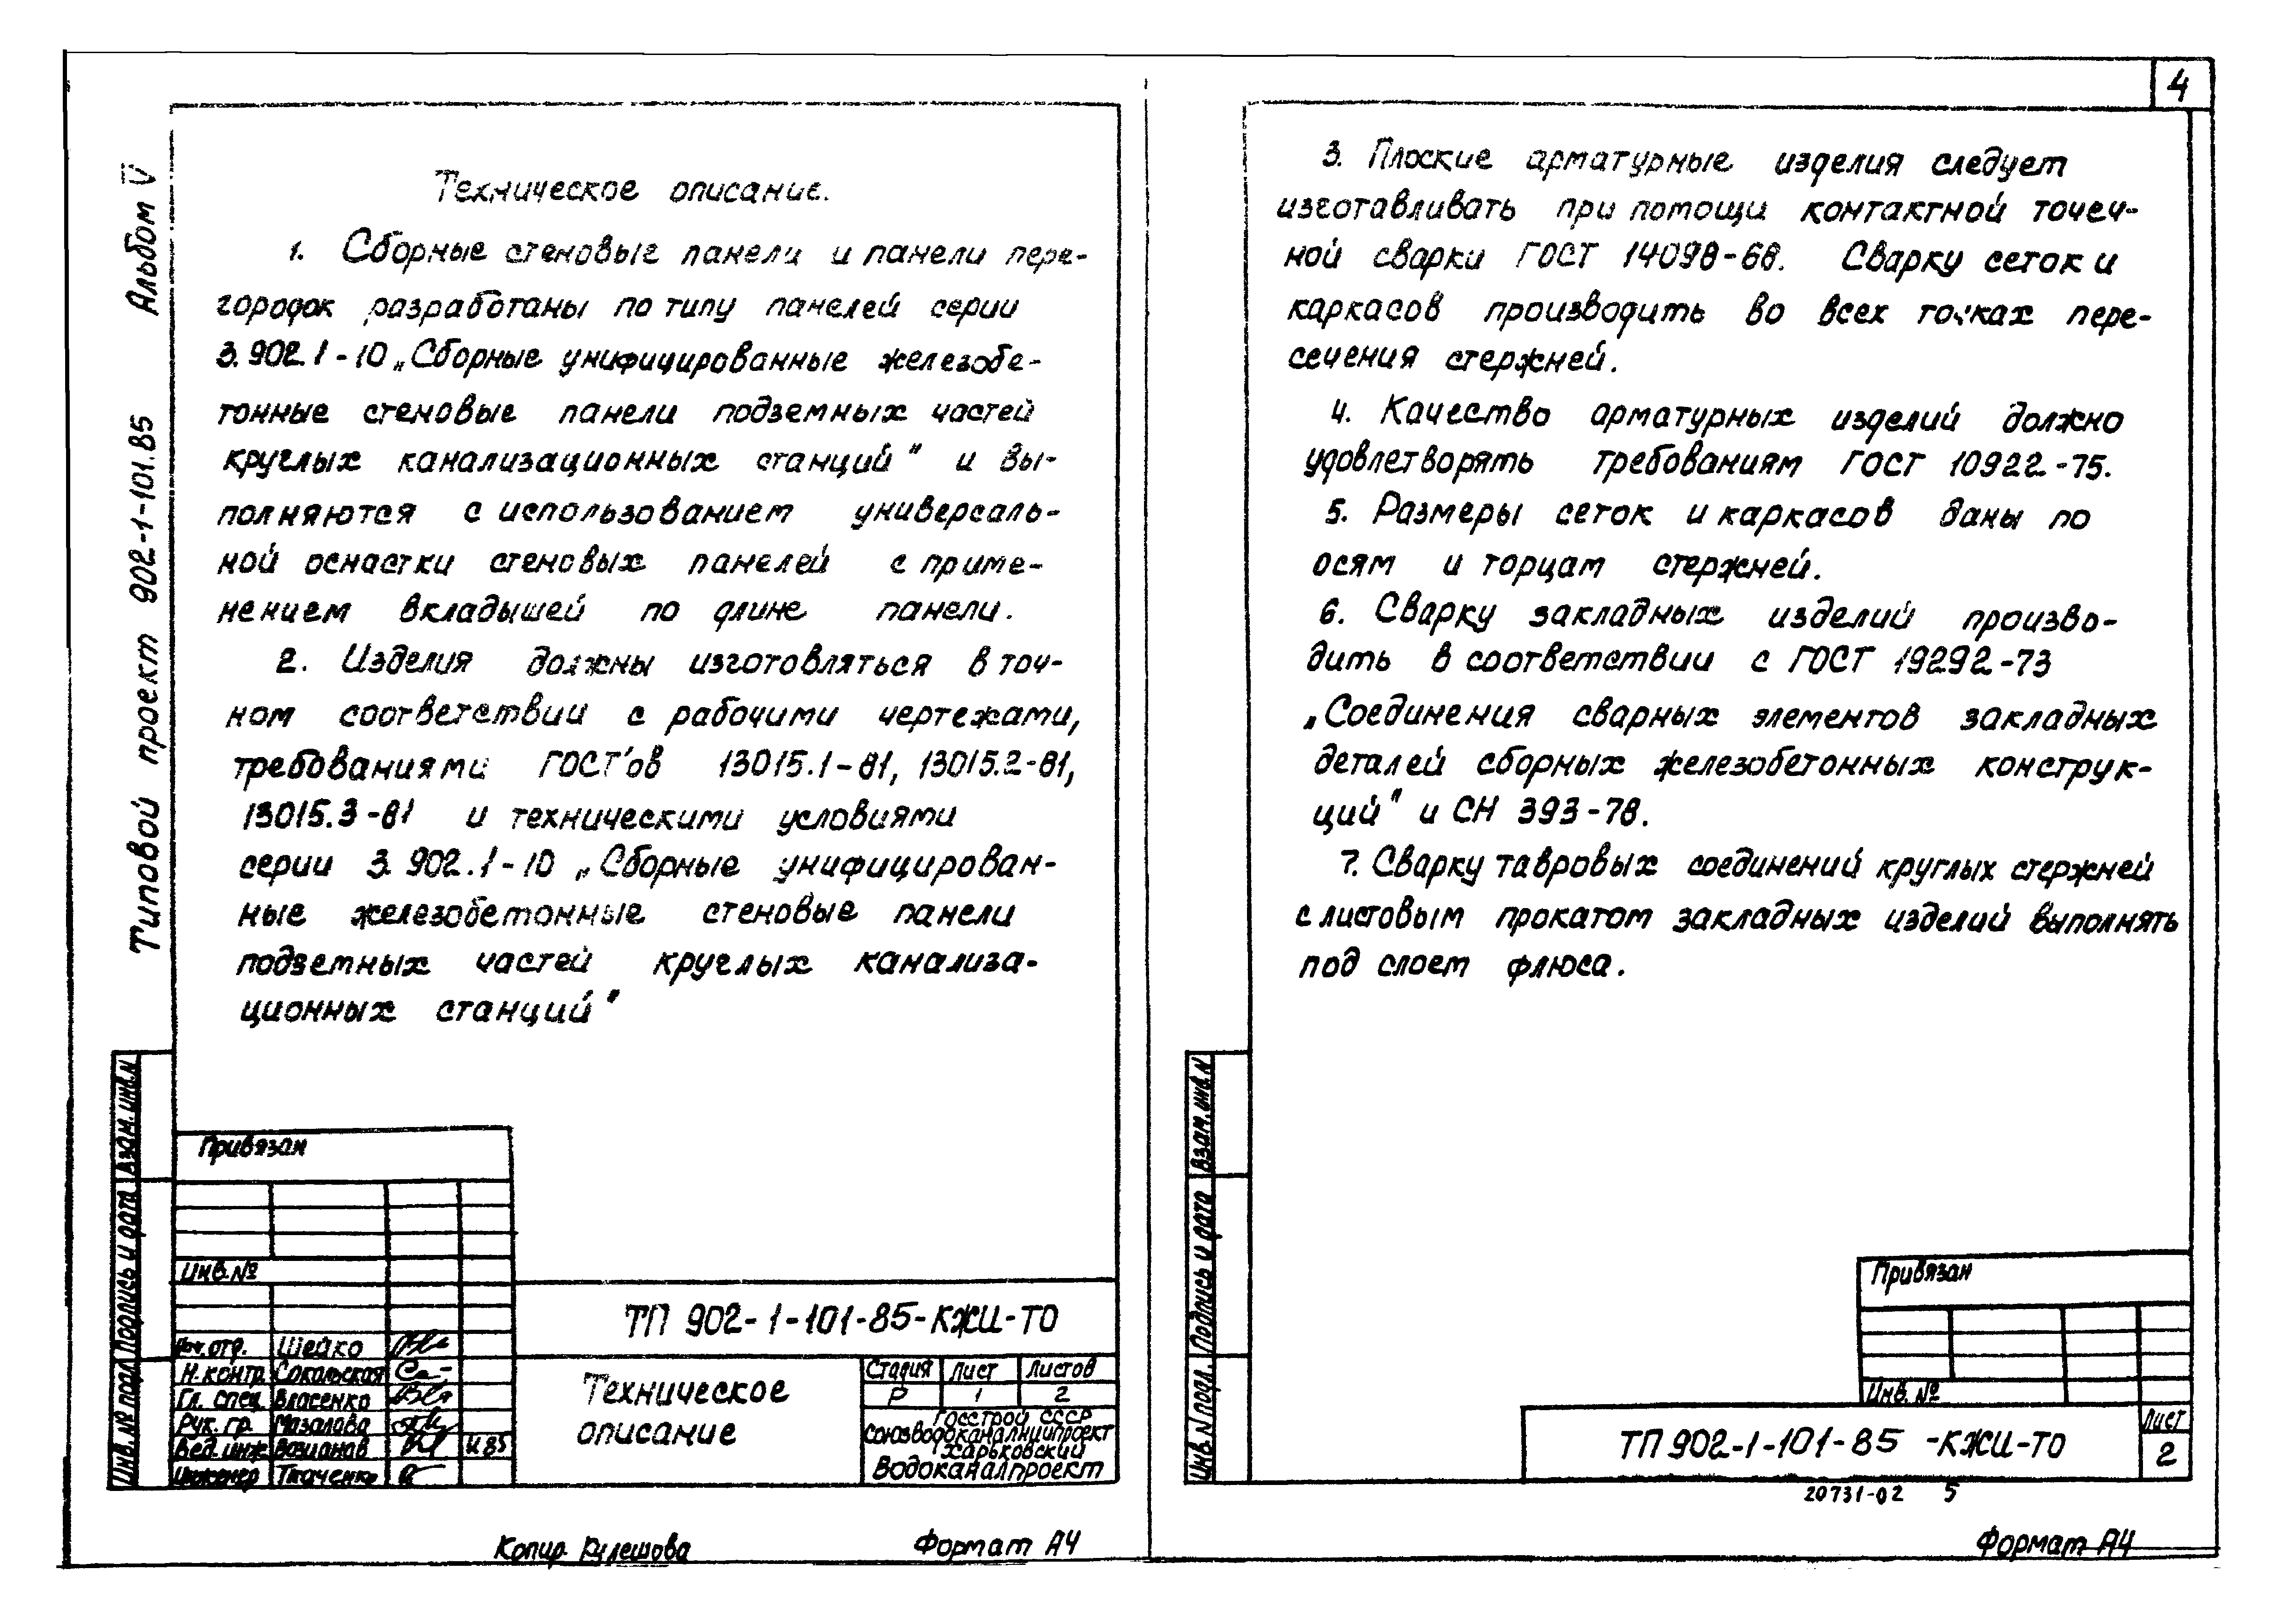 4
Типовой проект 902-1-101.85 Альбом V
Техническое описание.
1. Сборные стеновые панели и панели пере-
городок разработаны по типу панелей серии
3.902.1-10 „Сборные унифицированные железобе-
тонные стеновые панели подземных частей
круглых канализационных станций" и вы-
полняются с использованием универсаль-
ной оснастки стеновых панелей с приме-
нением вкладышей по длине панели.
2. Изделия должны изготовляться в точ-
ном соответствии с рабочими чертежами,
требованиями ГОСТ'ов 13015.1-81, 13015.2-81,
13015.3-81 и техническими условиями
серии 3.902.1-10 „Сборные унифицирован-
ные железобетонные стеновые панели
подземных частей круглых канализа-
ционных станций"
Взам. инв. N
Подпись и дата
Инв. № подл
Привязан
Инв. №
ТП 902-1-101-85-КЖИ-ТО
Нач. отд. Шейко
Н. контр. Сокольская
Гл. спец. Власенко
Рук. гр. Мазалова
Вед. инж. 85
Инженер Ткаченко
Техническое
описание
Стадия Лист Листов
Р 1 2
Госстрой СССР
Союзводоканалниипроект
Харьковский
Водоканалпроект
Копир. Кулешова Формат А4
3. Плоские арматурные изделия следует
изготавливать при помощи контактной точеч-
ной сварки ГОСТ 14098-68. Сварку сеток и
каркасов производить во всех точках пере-
сечения стержней.
4. Качество арматурных изделий должно
удовлетворять требованиям ГОСТ 10922-75.
5. Размеры сеток и каркасов даны по
осям и торцам стержней.
6. Сварку закладных изделий произво-
дить в соответствии с ГОСТ 19292-73
„Соединения сварных элементов закладных
деталей сборных железобетонных конструк-
ций" и СН 393-78.
7. Сварку тавровых соединений круглых стержней
с листовым прокатом закладных изделий выполнять
под слоем флюса.
Взам. инв. N
Подпись и дата
Инв. N подл.
Привязан
Инв. №
ТП 902-1-101-85-КЖИ-ТО
Лист
2
20731-02 5
Формат А4